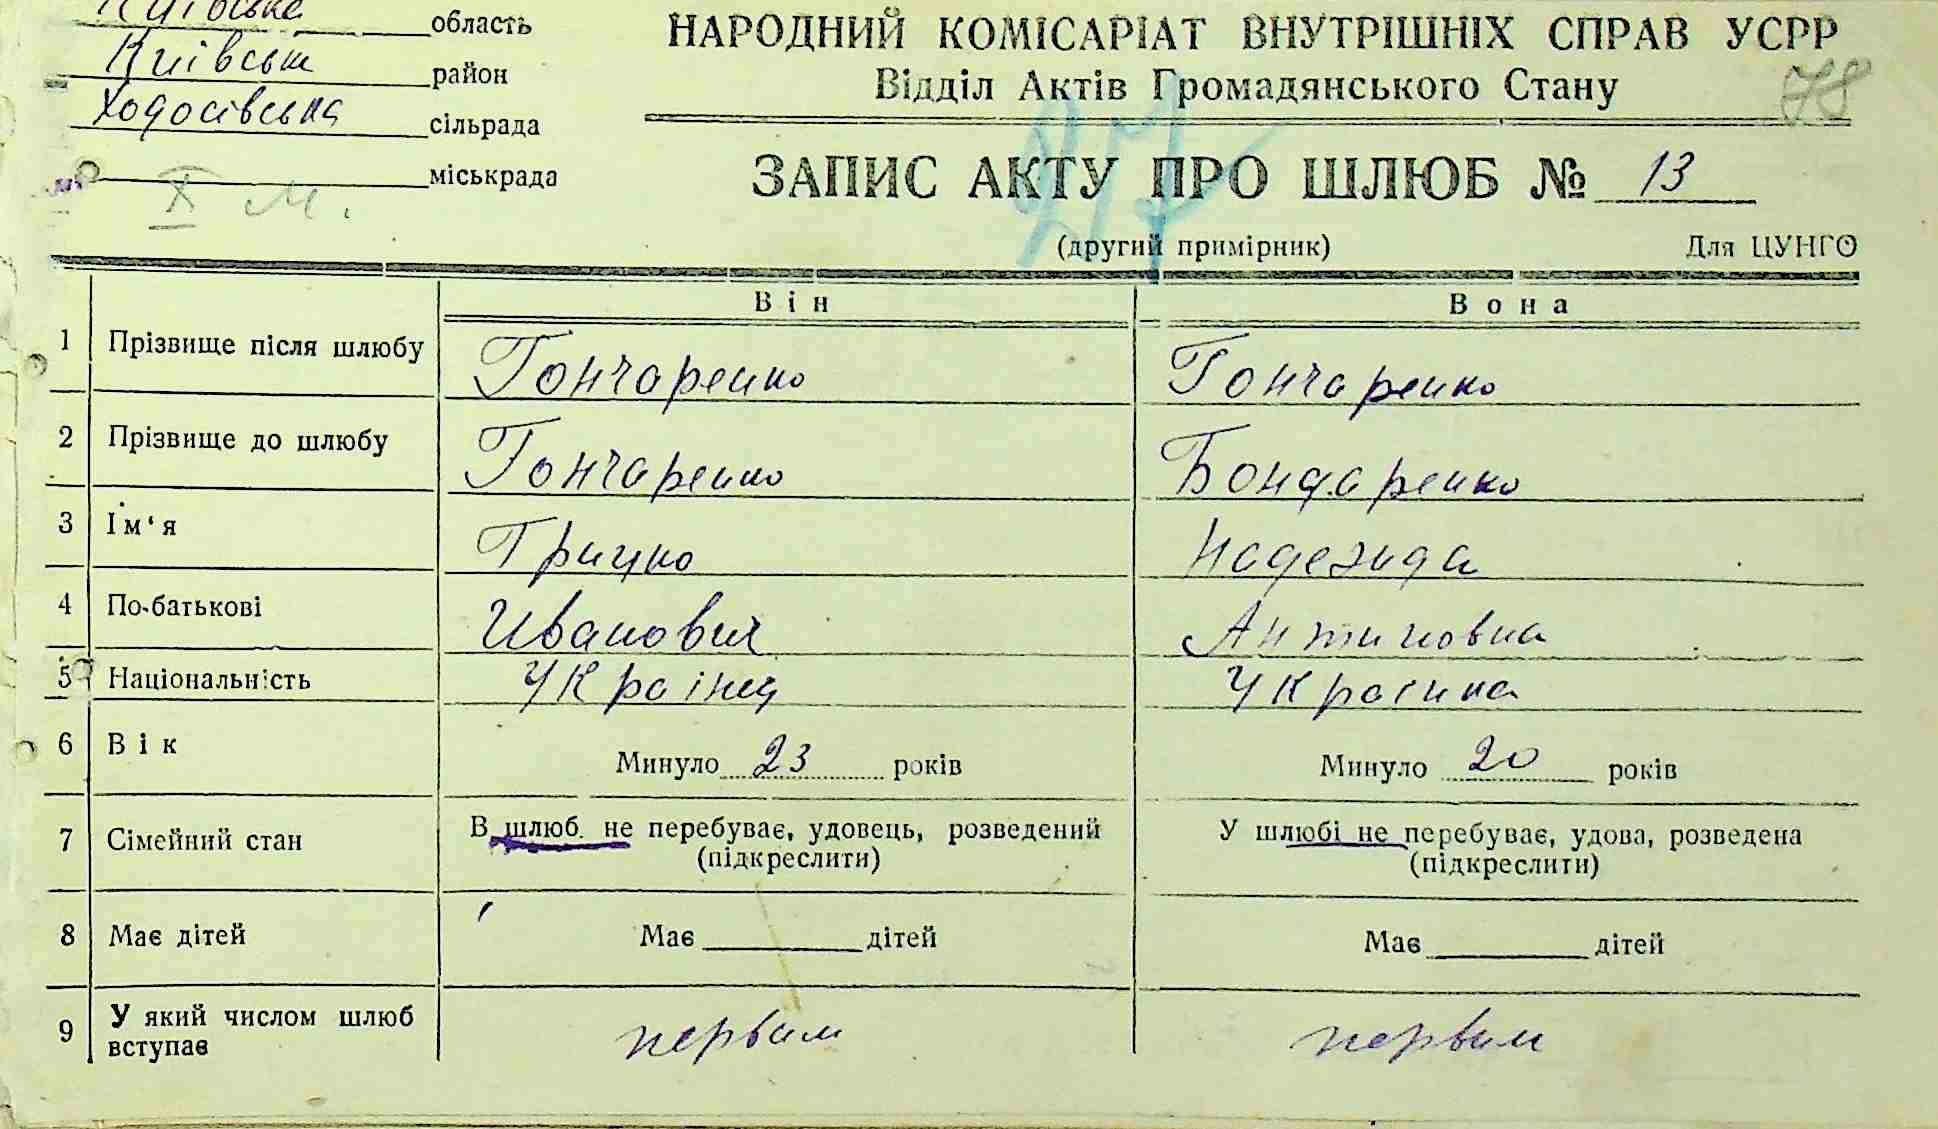 Київська область
Київськ район
Ходосівська сільрада
міськрада
X м.
НАРОДНИЙ КОМІСАРІАТ ВНУТРІШНІХ СПРАВ УСРР
Відділ Актів Громадянського Стану
78
27
ЗАПИС АКТУ ПРО ШЛЮБ № 13
(другий примірник) Для ЦУНГО
Він Вона
1 Прізвище після шлюбу Гончаренко Гончаренко
2 Прізвище до шлюбу Гончаренко Бондаренко
3 Ім'я Грицко Надежда
4 По-батькові Иванович Антиповна
5 Національність Українец Українка
6 Вік Минуло 23 років Минуло 20 років
7 Сімейний стан В шлюб. не перебуває, удовець, розведений У шлюбі не перебуває, удова, розведена
(підкреслити) (підкреслити)
8 Має дітей Має дітей Має дітей
9 У який числом шлюб вступає первым первым